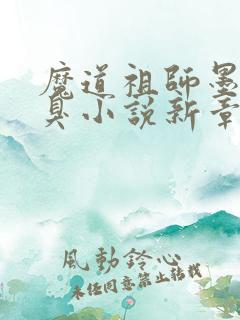 魔道祖師墨
臭小說新章
風動鈴心
未經同意禁止轉載